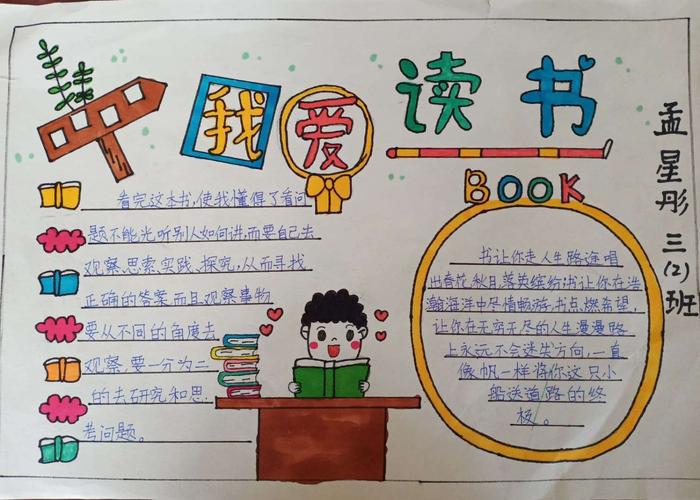 我爱读书
BOOK
孟星彤 三(2)班
看完这本书,使我懂得了看问
题不能光听别人如何讲,而要自己去
观察、思索、实践、探究,从而寻找
正确的答案,而且观察事物
要从不同的角度去
观察,要一分为二
的去研究和思
考问题。
书让你走人生路途唱
出春花秋月,落英缤纷;书让你在浩
瀚海洋中尽情畅游;书点燃希望,
让你在无穷无尽的人生漫漫路
上永远不会迷失方向,一直
像帆一样将你这只小
船送道路的终
极。